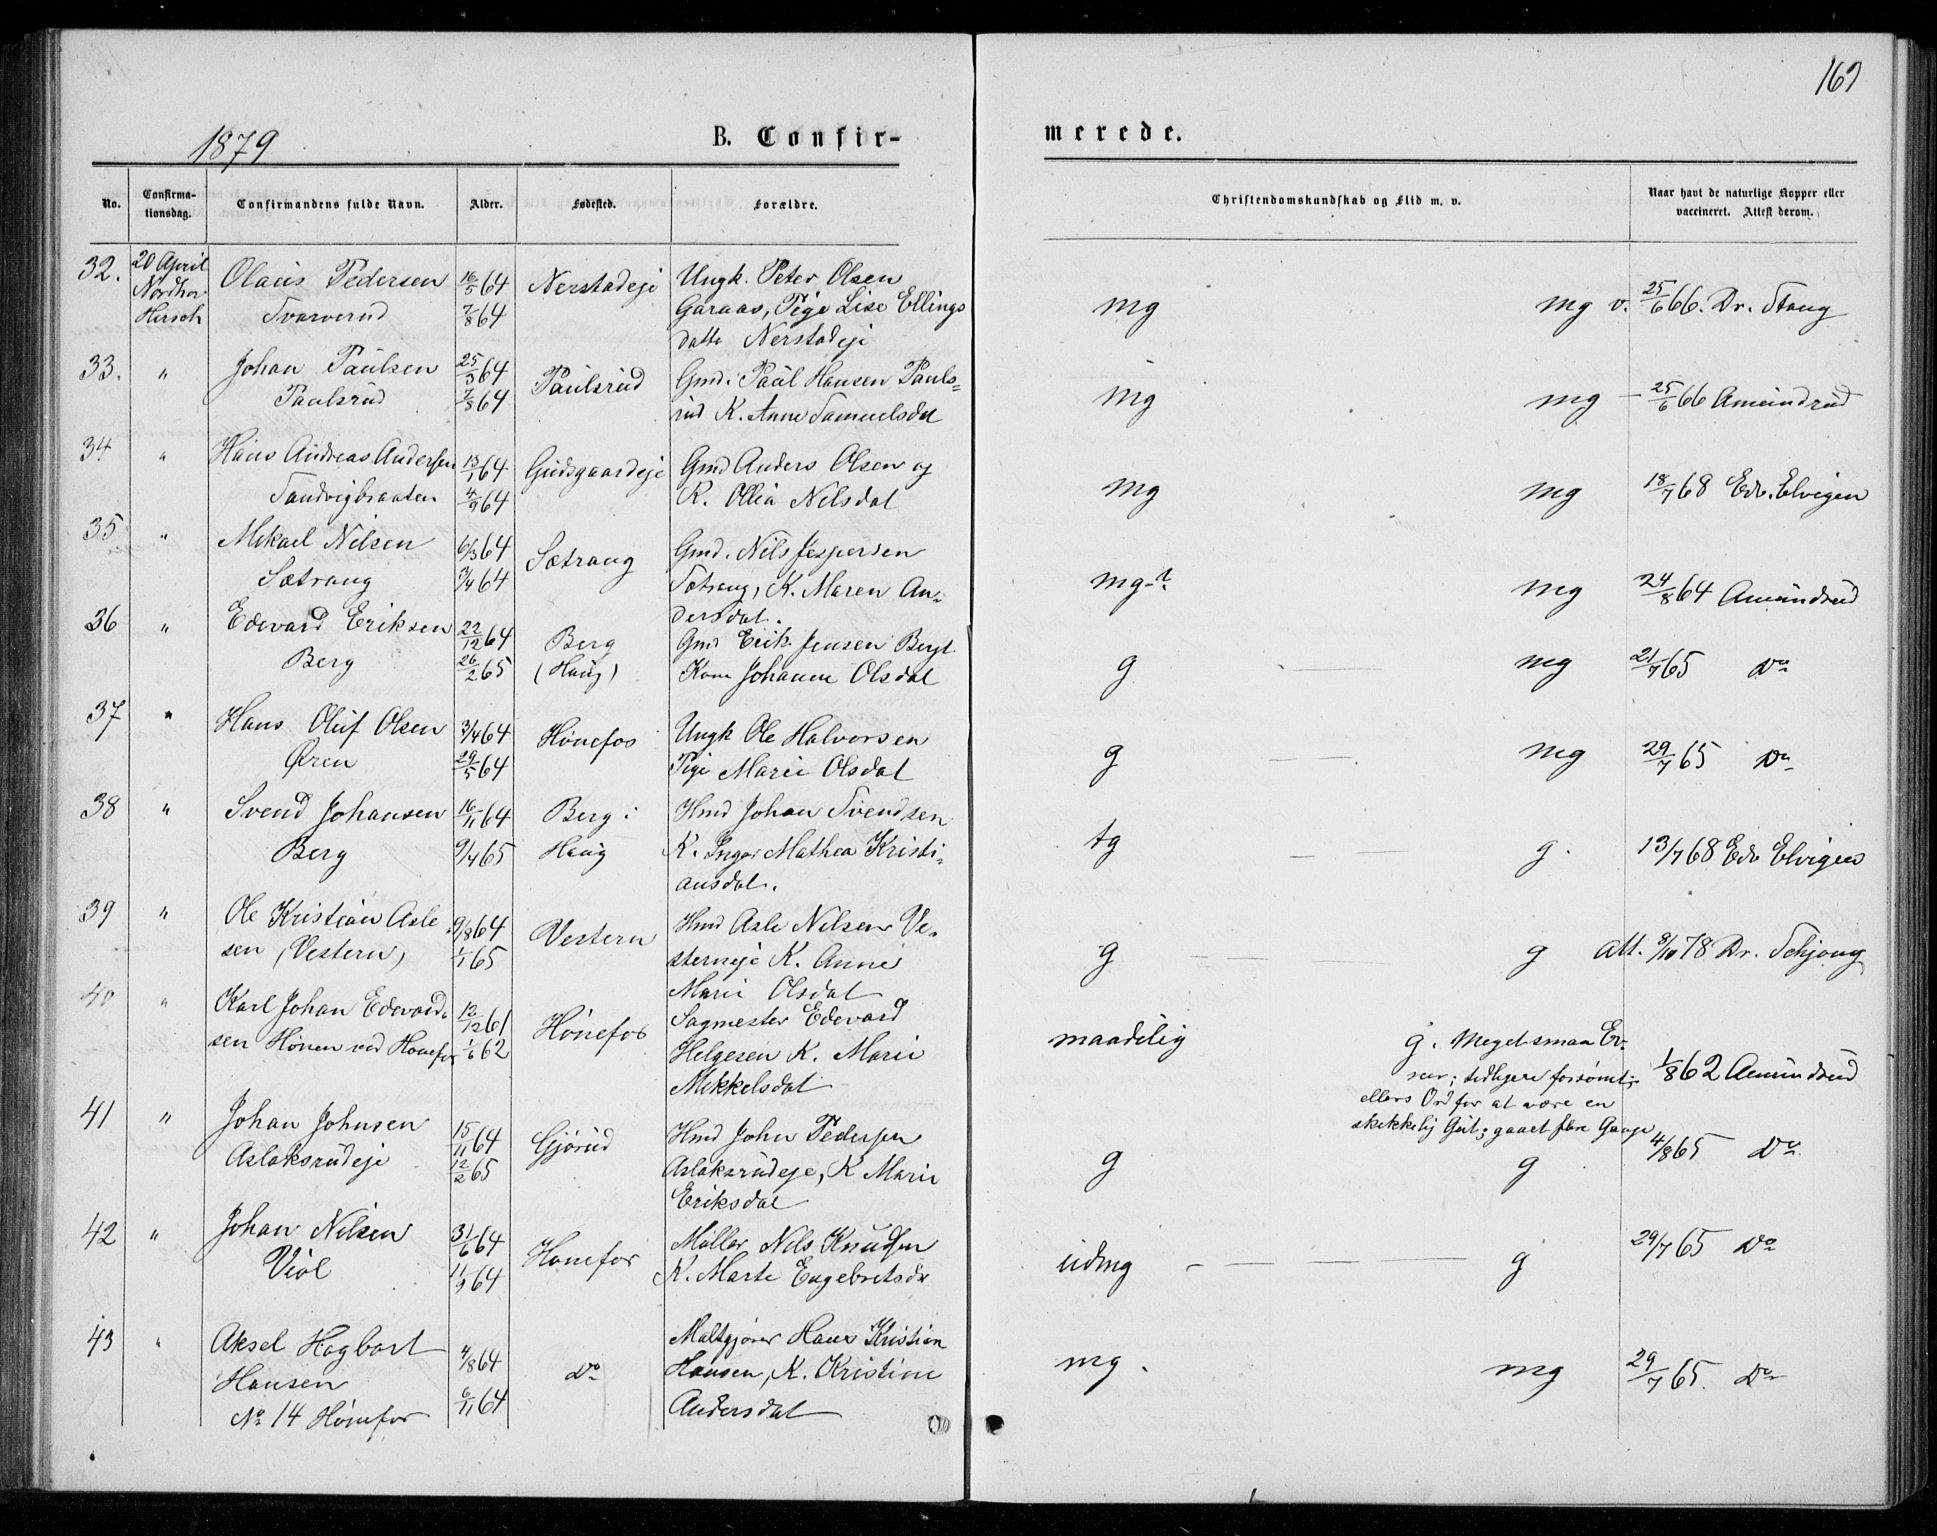 1879
B. Confir-
merede.
167
No.
Confirma-
tionsdag.
Confirmandens fulde Navn.
Alder.
Fødested.
Forældre.
Christendomskundskab og Flid m. v.
Naar havt de naturlige Kopper eller
vaccineret. Attest derom.
32. 20 April Olaus Pedersen 16/5 64 Nerstadeje Ungk. Peter Olsen
Nordho. Hirsch Tvarverud 7/8 64 Garaas, Pige Lise Ellings
datte Nerstadeje
mg mg v. 25/6 66. Dr. Stang
33. " Johan Paulsen 25/3 64 Paulsrud Gmd. Paul Hansen Pauls-
Paulsrud 7/8 64 rud K. Anne Samuelsdat
mg mg - 25/6 66 Amundrud
34 " Hans Andreas Andersen 13/1 64 Gudsgaardeje Gmd Anders Olsen og
Sandvigbraaten 4/9 64 K. Ollia Nilsdat
mg mg 18/7 68 Edv. Elvigen
35 " Mikael Nilsen 6/3 64 Sætrang Gmd. Nils Jespersen
Sætrang 3/4 64 Sætrang, K. Maren An-
dersdat.
mg-? mg 24/8 64 Amundrud
36 " Edevard Eriksen 22/12 64 Berg Gmd Erik Jensen Berg
Berg 26/2 65 (Haug) Kone Johanne Olsdat
g mg 21/7 65 Do
37 " Hans Oluf Olsen 3/4 64 Hønefos Ungk Ole Halvorsen
Øren 29/5 64 Pige Marie Olsdat
g mg 29/7 65 Do
38 " Svend Johansen 16/11 64 Berg i Hmd Johan Svendsen
Berg 9/4 65 Haug K. Inger Mathea Kristi-
ansdat.
tg g. 13/7 68 Edv Elvigen
39 " Ole Kristian Asle 9/8 64 Vestern Hmd Asle Nilsen Ve-
sen (Vestern) 1/1 65 sterneje K. Anne
Marie Olsdat
g g Att. 8/10 78 Dr. Schjong
40 " Karl Johan Edevard- 12/12 61 Hønefos Sagmester Edevard
sen Hønen ved Hønefos 1/6 62 Helgesen K. Marie
Mikkelsdat
maadelig g. Meget smaa Ev-
ner; tidligere forsømt;
ellers Ord for at være en
skikkelig Gut; gaaet flere Gange
1/8 62 Amundrud
41 " Johan Johnsen 15/11 64 Gjørud Hmd John Pedersen
Aslaksrudeje 12/2 65 Aslaksrudeje, K Marie
Eriksdat
g g 4/8 65 Do
42 " Johan Nilsen 31/6 64 Hønefos Møller Nils Knudsen
Viøl 11/9 64 K. Marte Engebretsdr
udmg g 29/7 65 Do
43 " Aksel Hagbart 4/8 64 Do Maltgjører Hans Kristian
Hansen 6/11 64 Hansen, K. Kristine
No 14 Hønefos Andersdat
mg. mg 29/7 65. Do